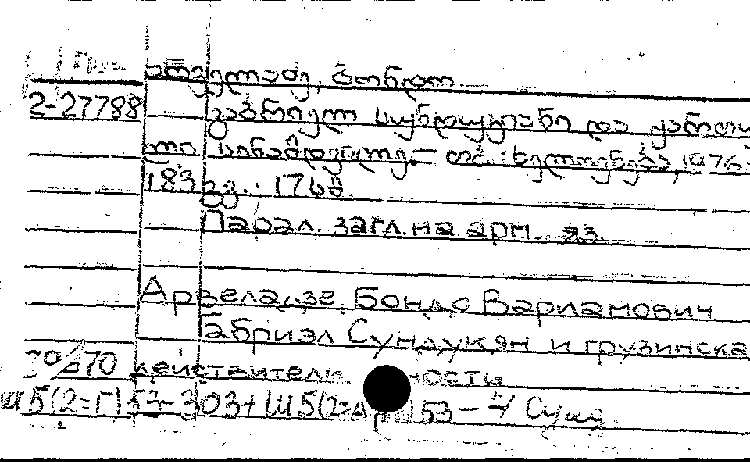 არველაძე, ბონდო
2-27788 გაბრიელ სუნდუკიანი და ქართუ
ლი სინამდვილე.— თბ.: ხელოვნება, 1976.
183 გვ.:
Парал. загл. на арм. яз.
Арвеладзе, Бондо Варламович
Габриэл Сундукян и грузинска
действительн ности
Ш5(2=Г)53-303+Ш5(2=Ар)53-4 Сунд.